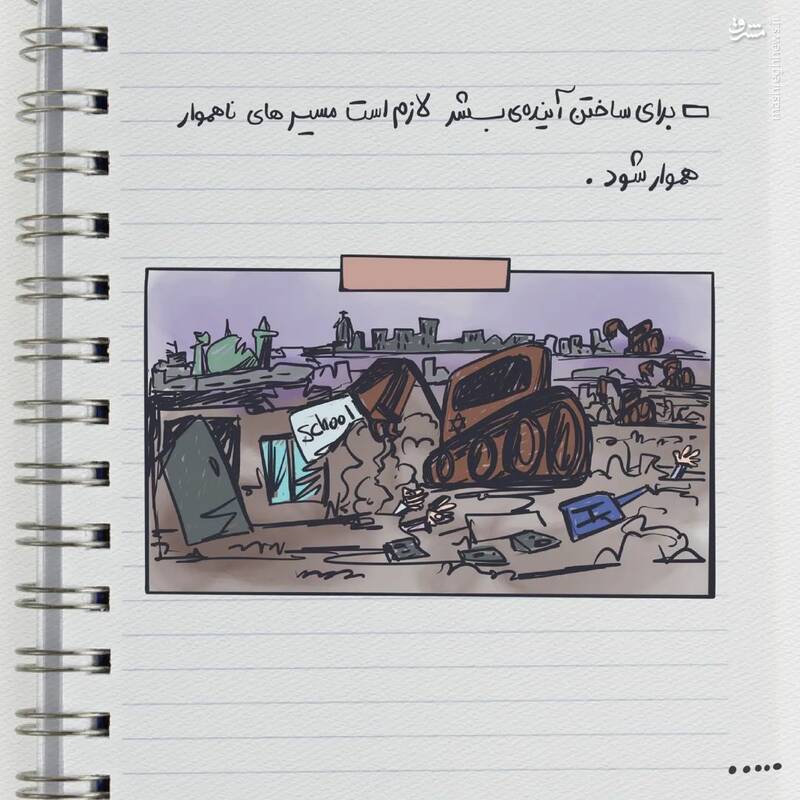 برای ساختن آینده‌ی بشر لازم است مسیر های ناهموار
هموار شود .
school
H
مشرق
mashreghnews.ir